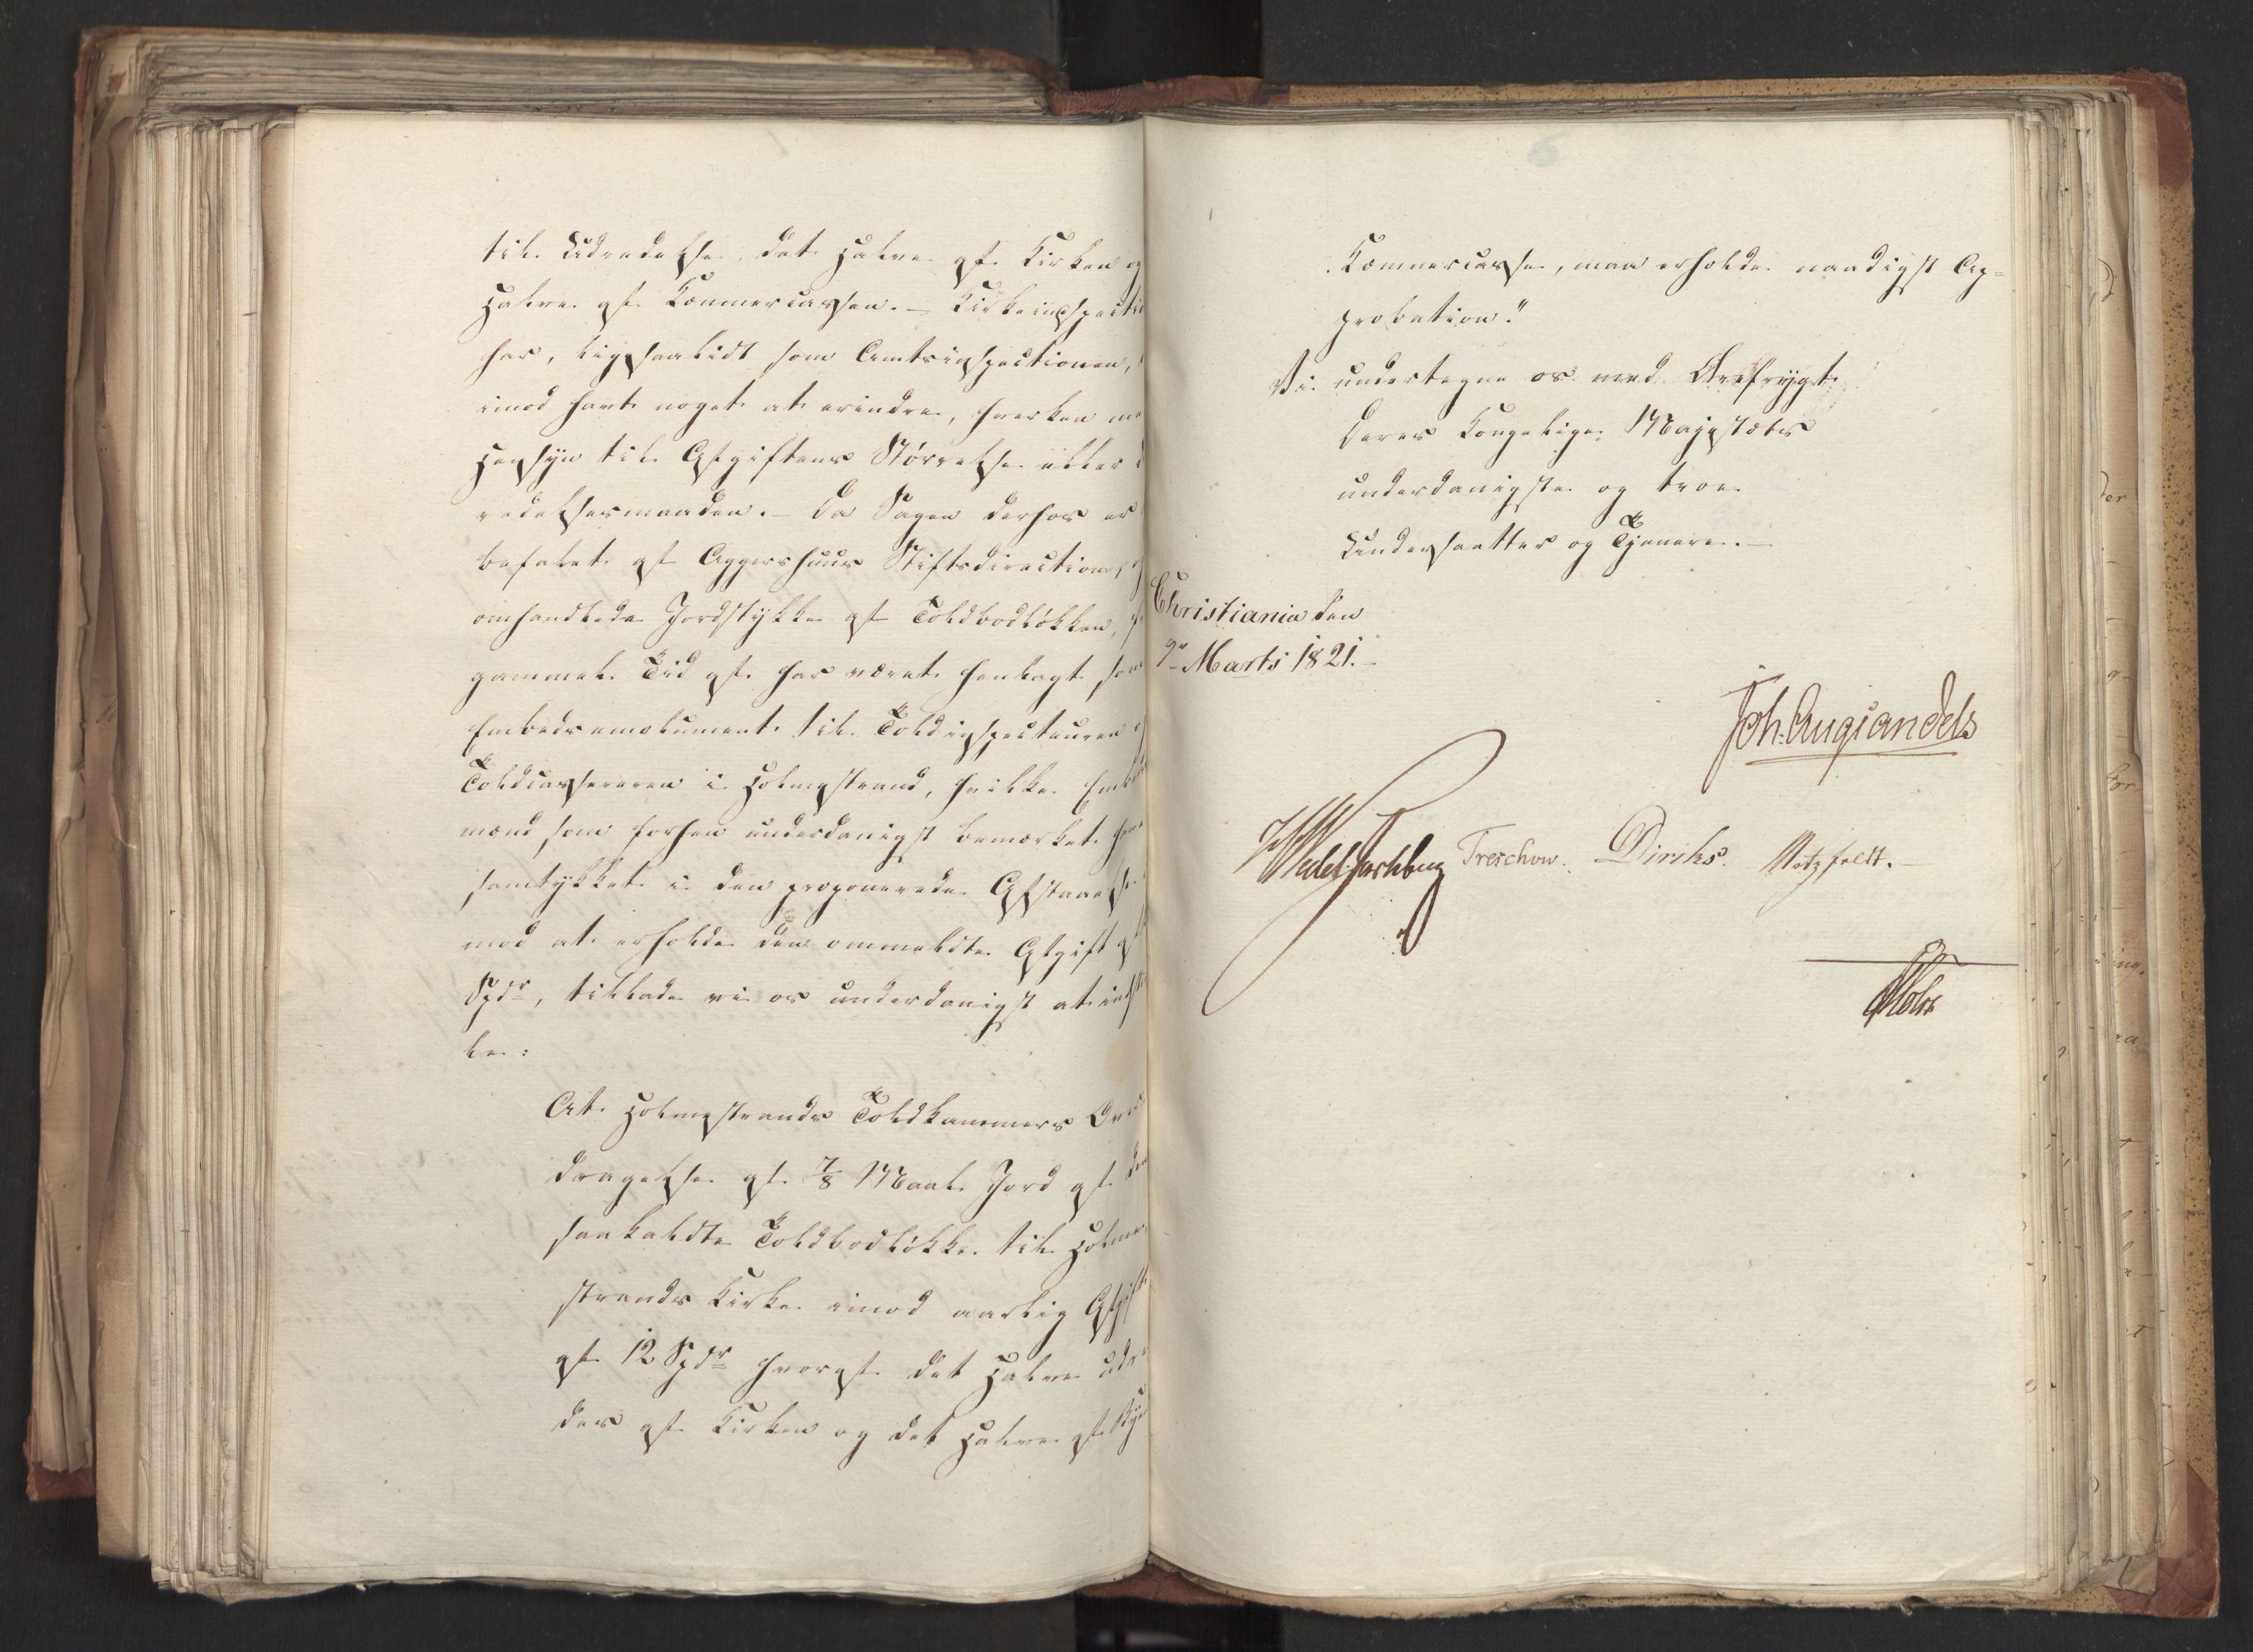 til Udredelse, det Halve af Kirken og
Halve af Kæmnercassen. – Kirkeinspecti
har, ligesaalidt som Amtsinspectionen,
imod havt noget at erindre, hverken me
Hensyn til Afgiftens Størrelse eller
redelsesmaaden. – Da Sagen derhos er
befalet af Aggershuus Stiftsdirection,
omhandlede Jordstykke af Toldbodløkken,
gammel Tid af har været henlagt som
Embedsemolument til Toldinspecteuren
Toldcassereren i Holmestrand, hvilke Emb
mænd, som forhen underdanigst bemærket, have
samtykket i den proponerede Afstaaelse
mod at erholde den ommeldte Afgift af
Spdr, tillade vi os underdanigst at indstil
le:
At Holmestrands Toldkammers Over
dragelse af 7/8 Maal Jord af den
saakaldte Toldbodløkke til Holme
strands Kirke imod aarlig Afgift
af 12 Spdr hvoraf det Halve udre
des af Kirken og det Halve af Byens
Kæmnercasse, maa erholde naadigst Ap-
probation."
Vi undertegne os med Ærefrygt
Deres Kongelige Majestæts
underdanigste og troe
Undersaatter og Tjenere. –
Christiania den
9de Marts 1821. –
Joh. Aug. Sandels
HWedel Jarlsberg Treschow. Diriks. Motzfeldt. –
Holst